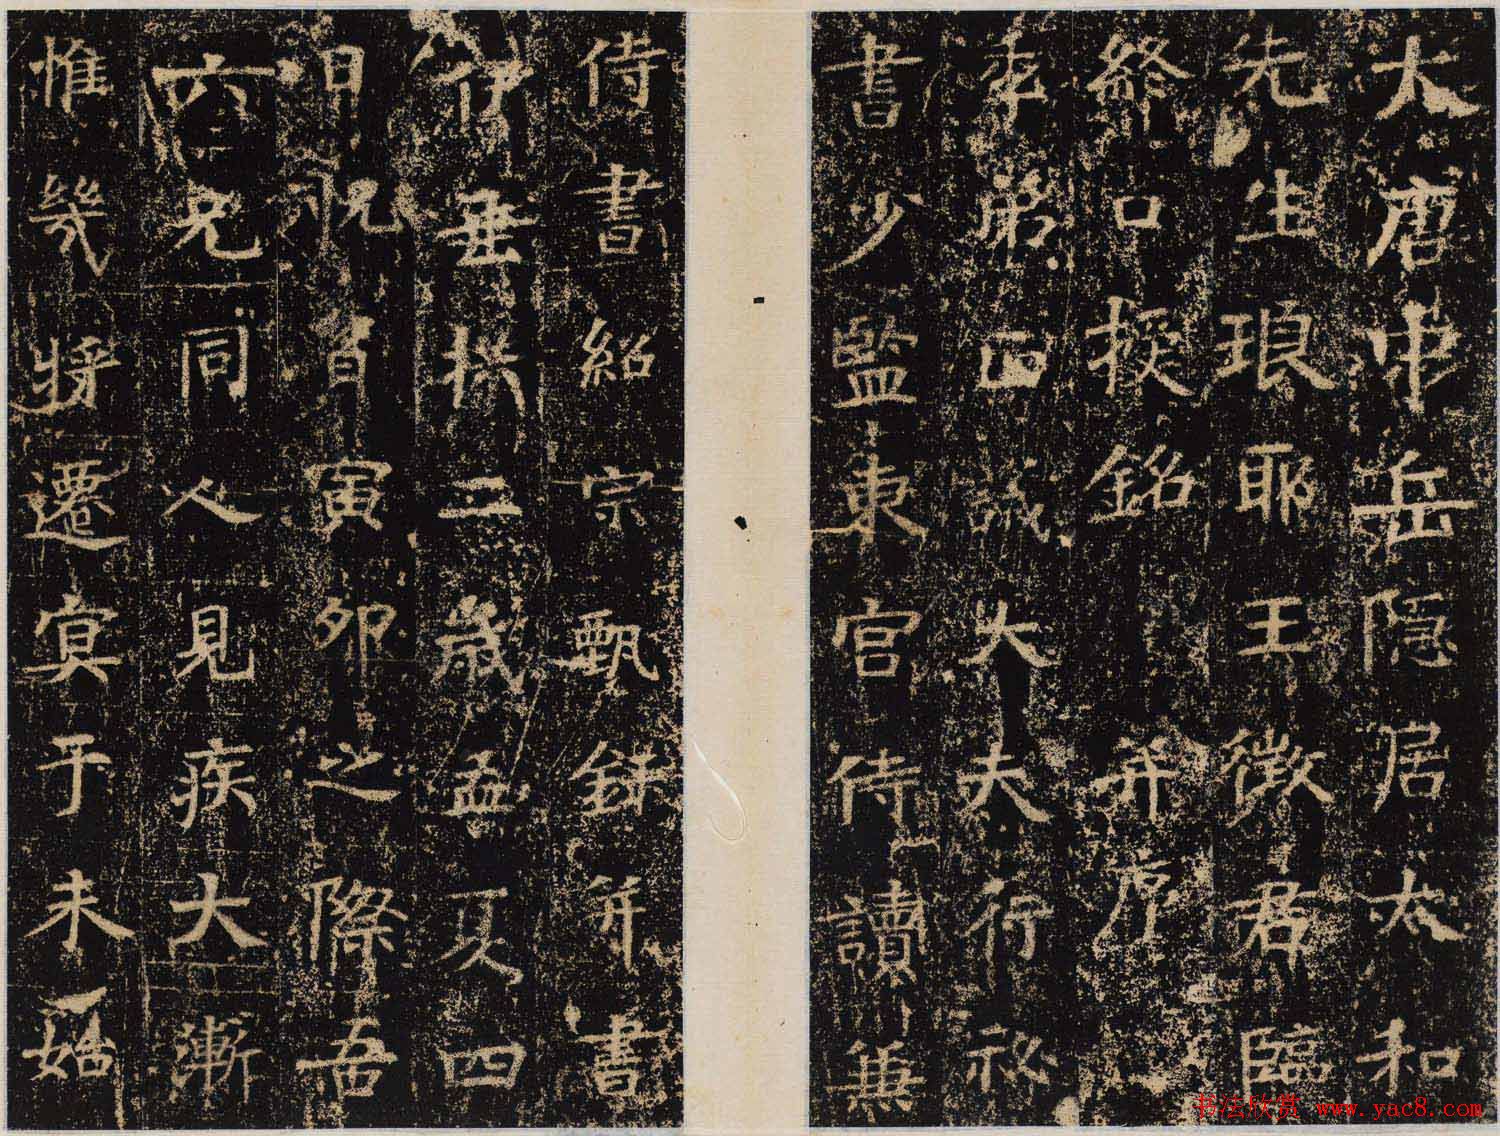 大唐中岳隱居太和
先生琅耶王徵君臨
終口授銘并序
季弟正議大夫行祕
書少監東宮侍讀兼
侍書紹宗甄錄并書
伊垂拱二歲孟夏四
日自寅卯之際吾
六兄同人見疾大漸
惟幾將遷冥于未始
书法欣赏 www.yac8.com